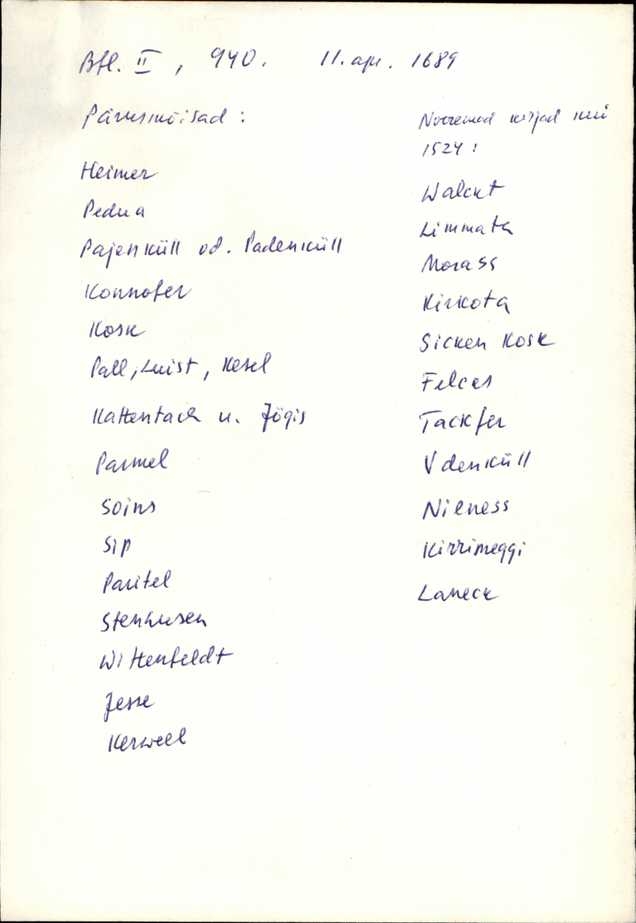 Bfl. II, 940. 11. apr. 1689
Pärusmõisad:
Heimer
Pedua
Pajenküll od. Padenküll
Konnofer
Kosk
Pall, Luist, Kesel
Kattentack u. Jögis
Parmel
Soins
Sip
Paritel
Stenhusen
Wittenfeldt
Jesse
Kerwell
Nooremad kirjad kui
1524:
Walckt
Limmata
Morass
Kirkota
Sicken Kosk
Felces
Tackfer
Udenküll
Nieness
Kirrimeggi
Laneck